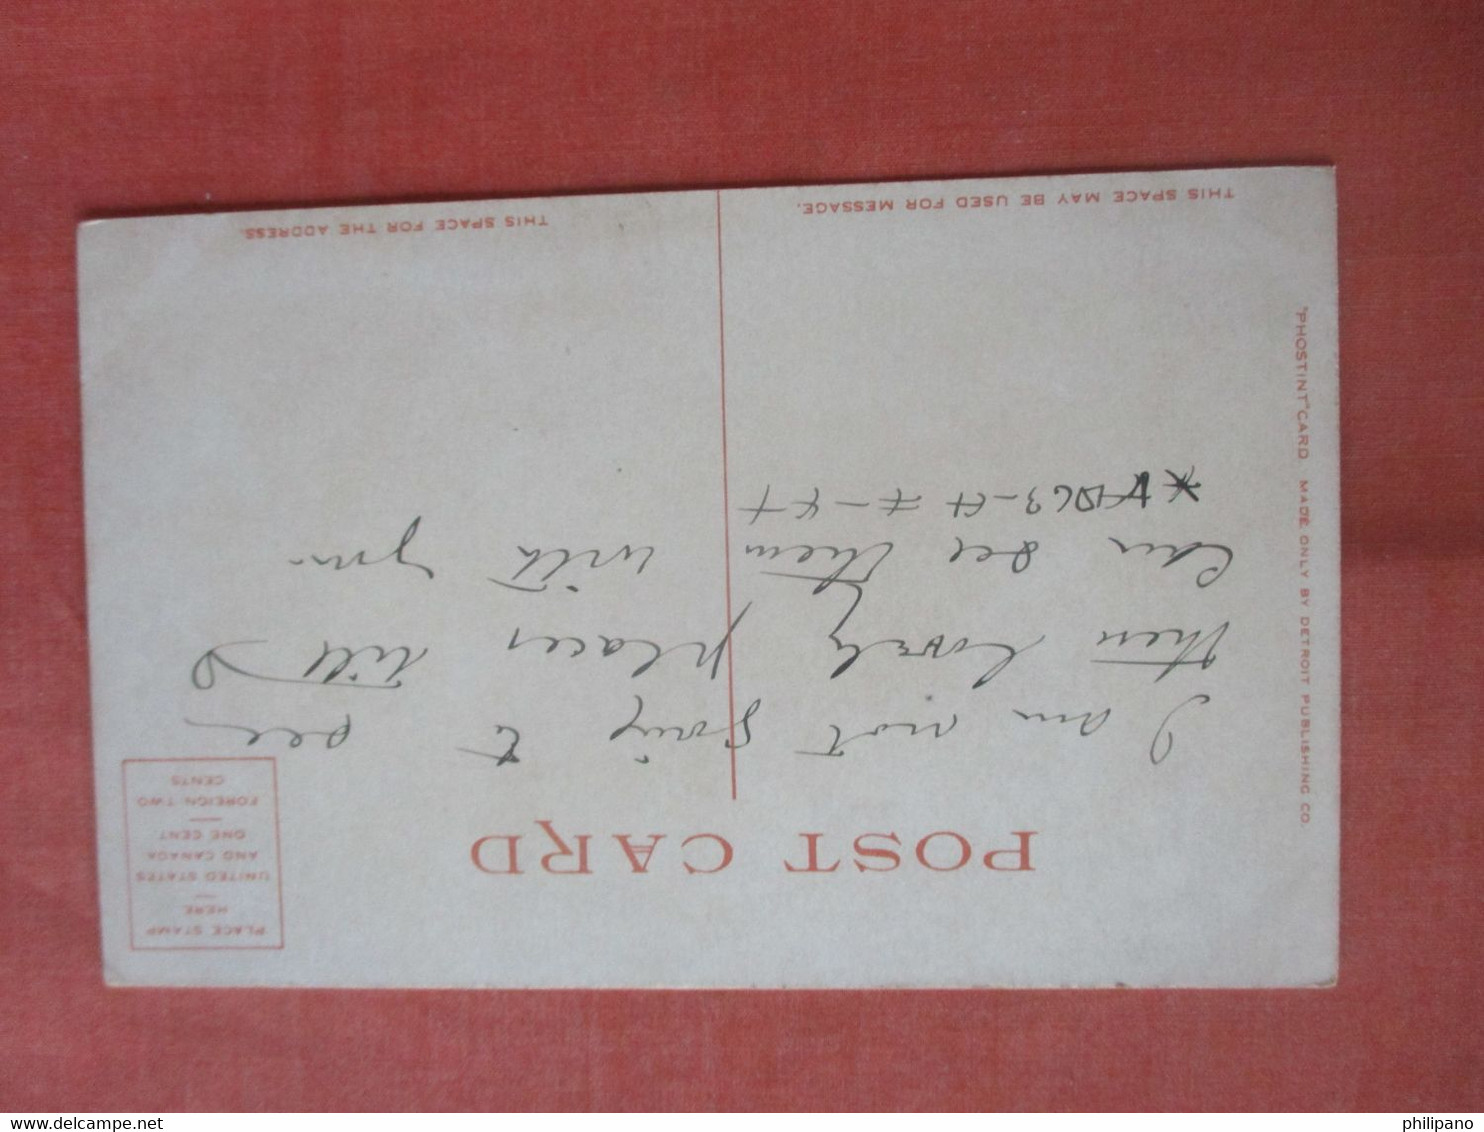 POST CARD
PLACE STAMP
HERE
UNITED STATES
AND CANADA
ONE CENT
FOREIGN TWO
CENTS
I am not going to see
then lovely places till I
can see them with you
THIS SPACE MAY BE USED FOR MESSAGE.
THIS SPACE FOR THE ADDRESS.
"PHOSTINT" CARD MADE ONLY BY DETROIT PUBLISHING CO.
delcampe.net
philipano